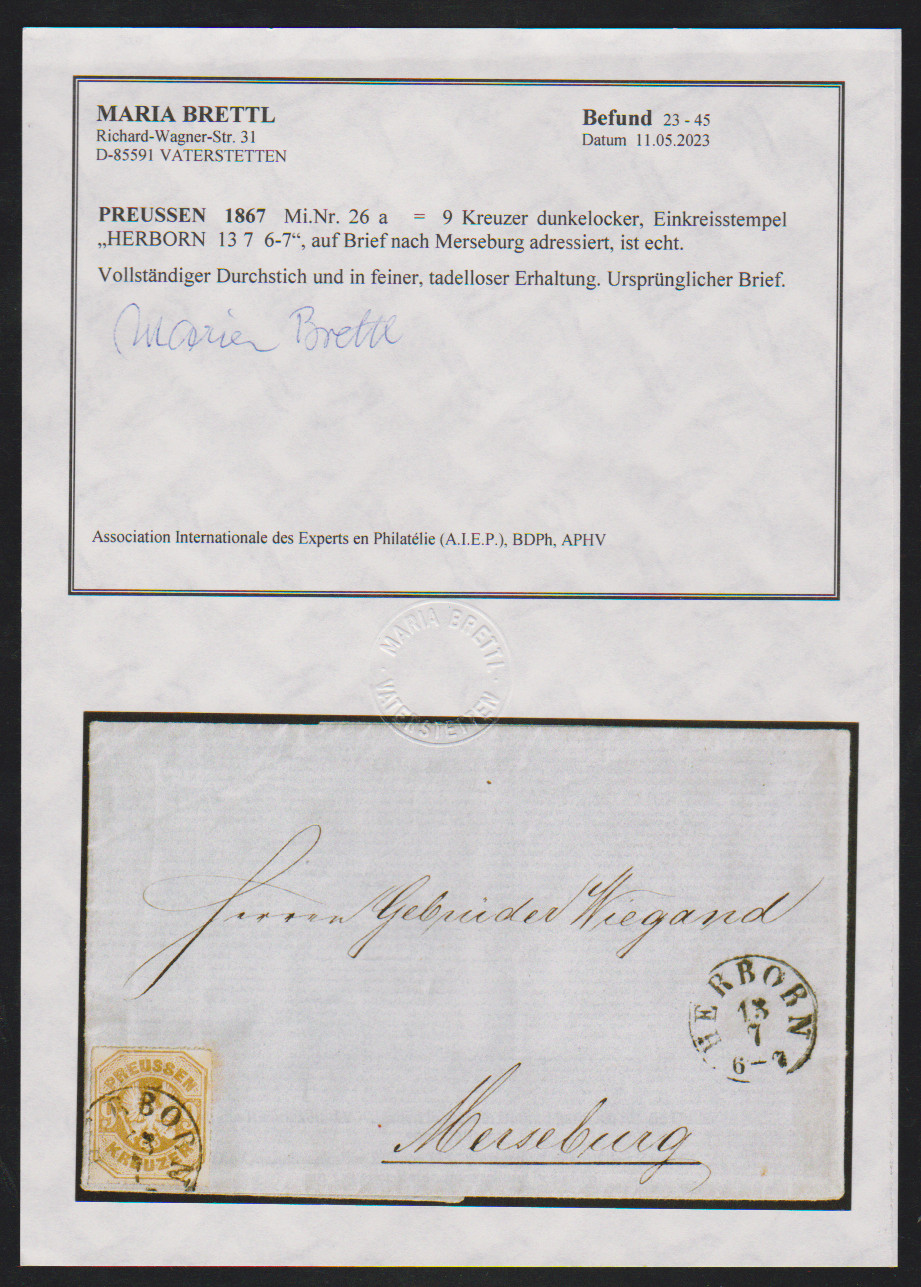 MARIA BRETTL
Richard-Wagner-Str. 31
D-85591 VATERSTETTEN
Befund 23 - 45
Datum 11.05.2023
PREUSSEN 1867 Mi.Nr. 26 a = 9 Kreuzer dunkelocker, Einkreisstempel
„HERBORN 13 7 6-7“, auf Brief nach Merseburg adressiert, ist echt.
Vollständiger Durchstich und in feiner, tadelloser Erhaltung. Ursprünglicher Brief.
Maria Brettl
Association Internationale des Experts en Philatélie (A.I.E.P.), BDPh, APHV
MARIA BRETTL
VATERSTETTEN
Herren Gebrüder Wiegand
HERBORN
13
7
6-7
PREUSSEN
9
KREUZER
Merseburg